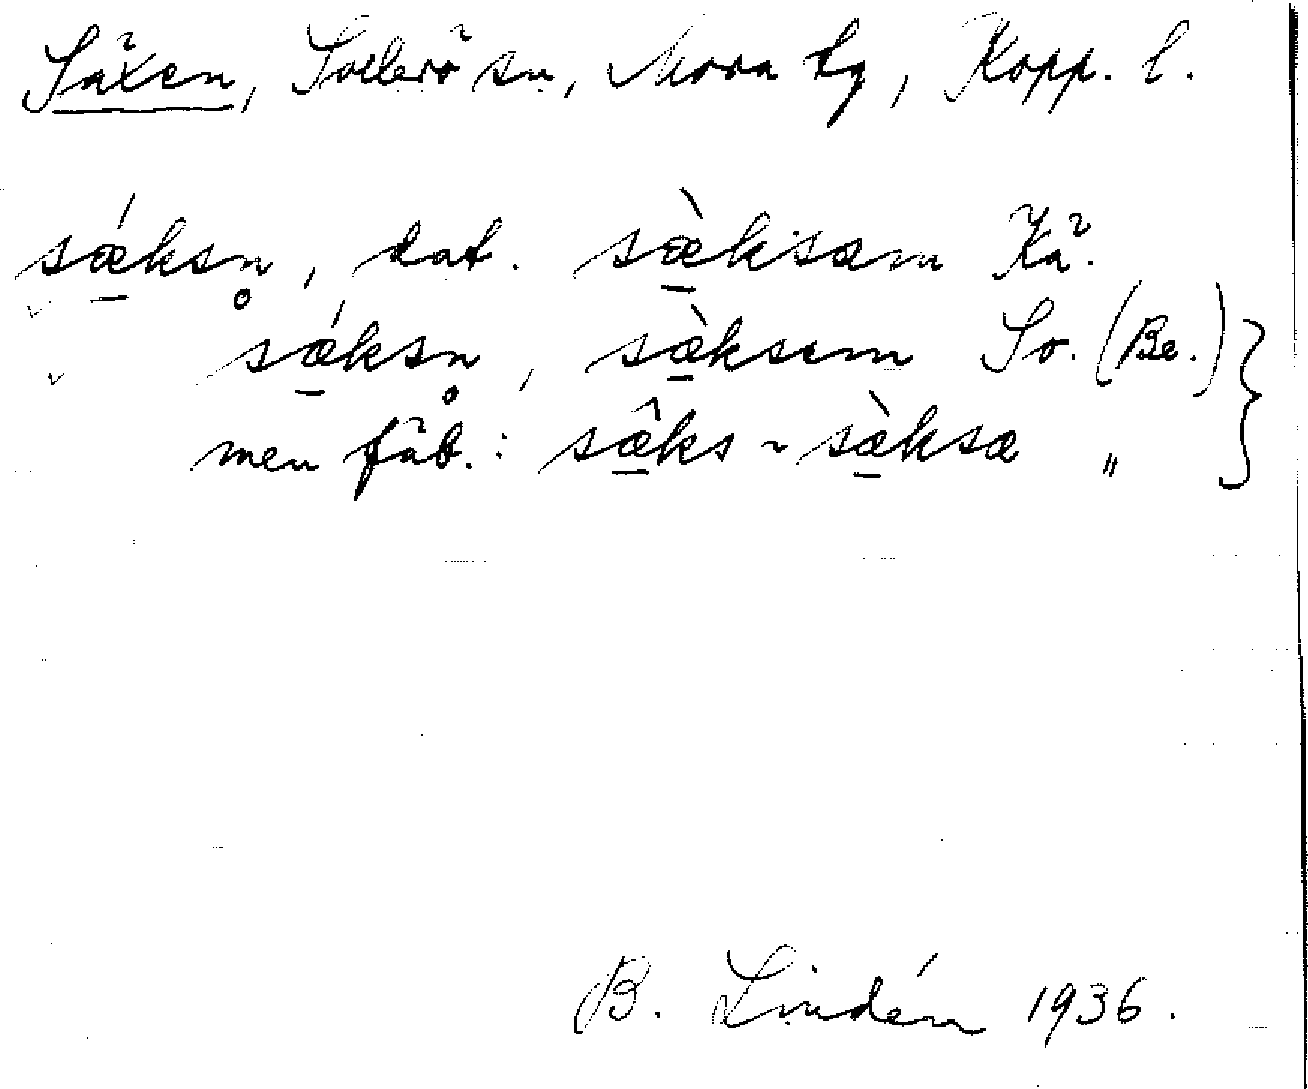 Säxen, Sollerö sn, Mora tg, Kopp. l.
sǽksn̥, dat. sæ̀ksæm Kå.
sǽksn̥, sæ̀ksem So. (Be.)
men fäb.: sæ̂ks ~ sæ̀ksæ "
B. Lindén 1936.